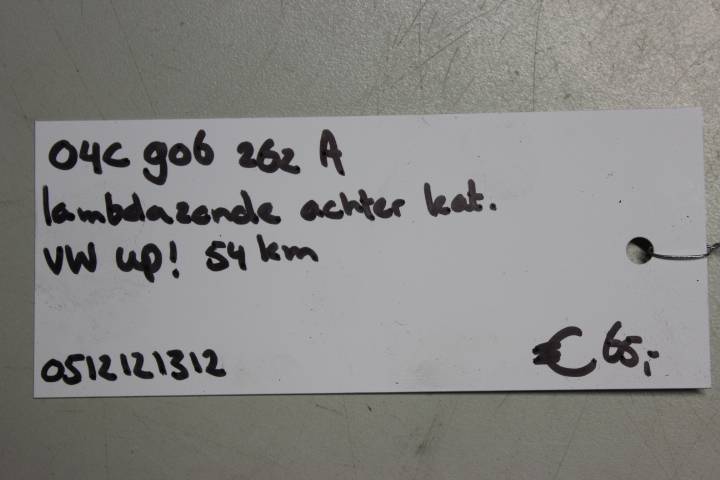 04C 906 262 A
lambdazonde achter kat.
VW up! 54 km
0512121312
€ 65,-